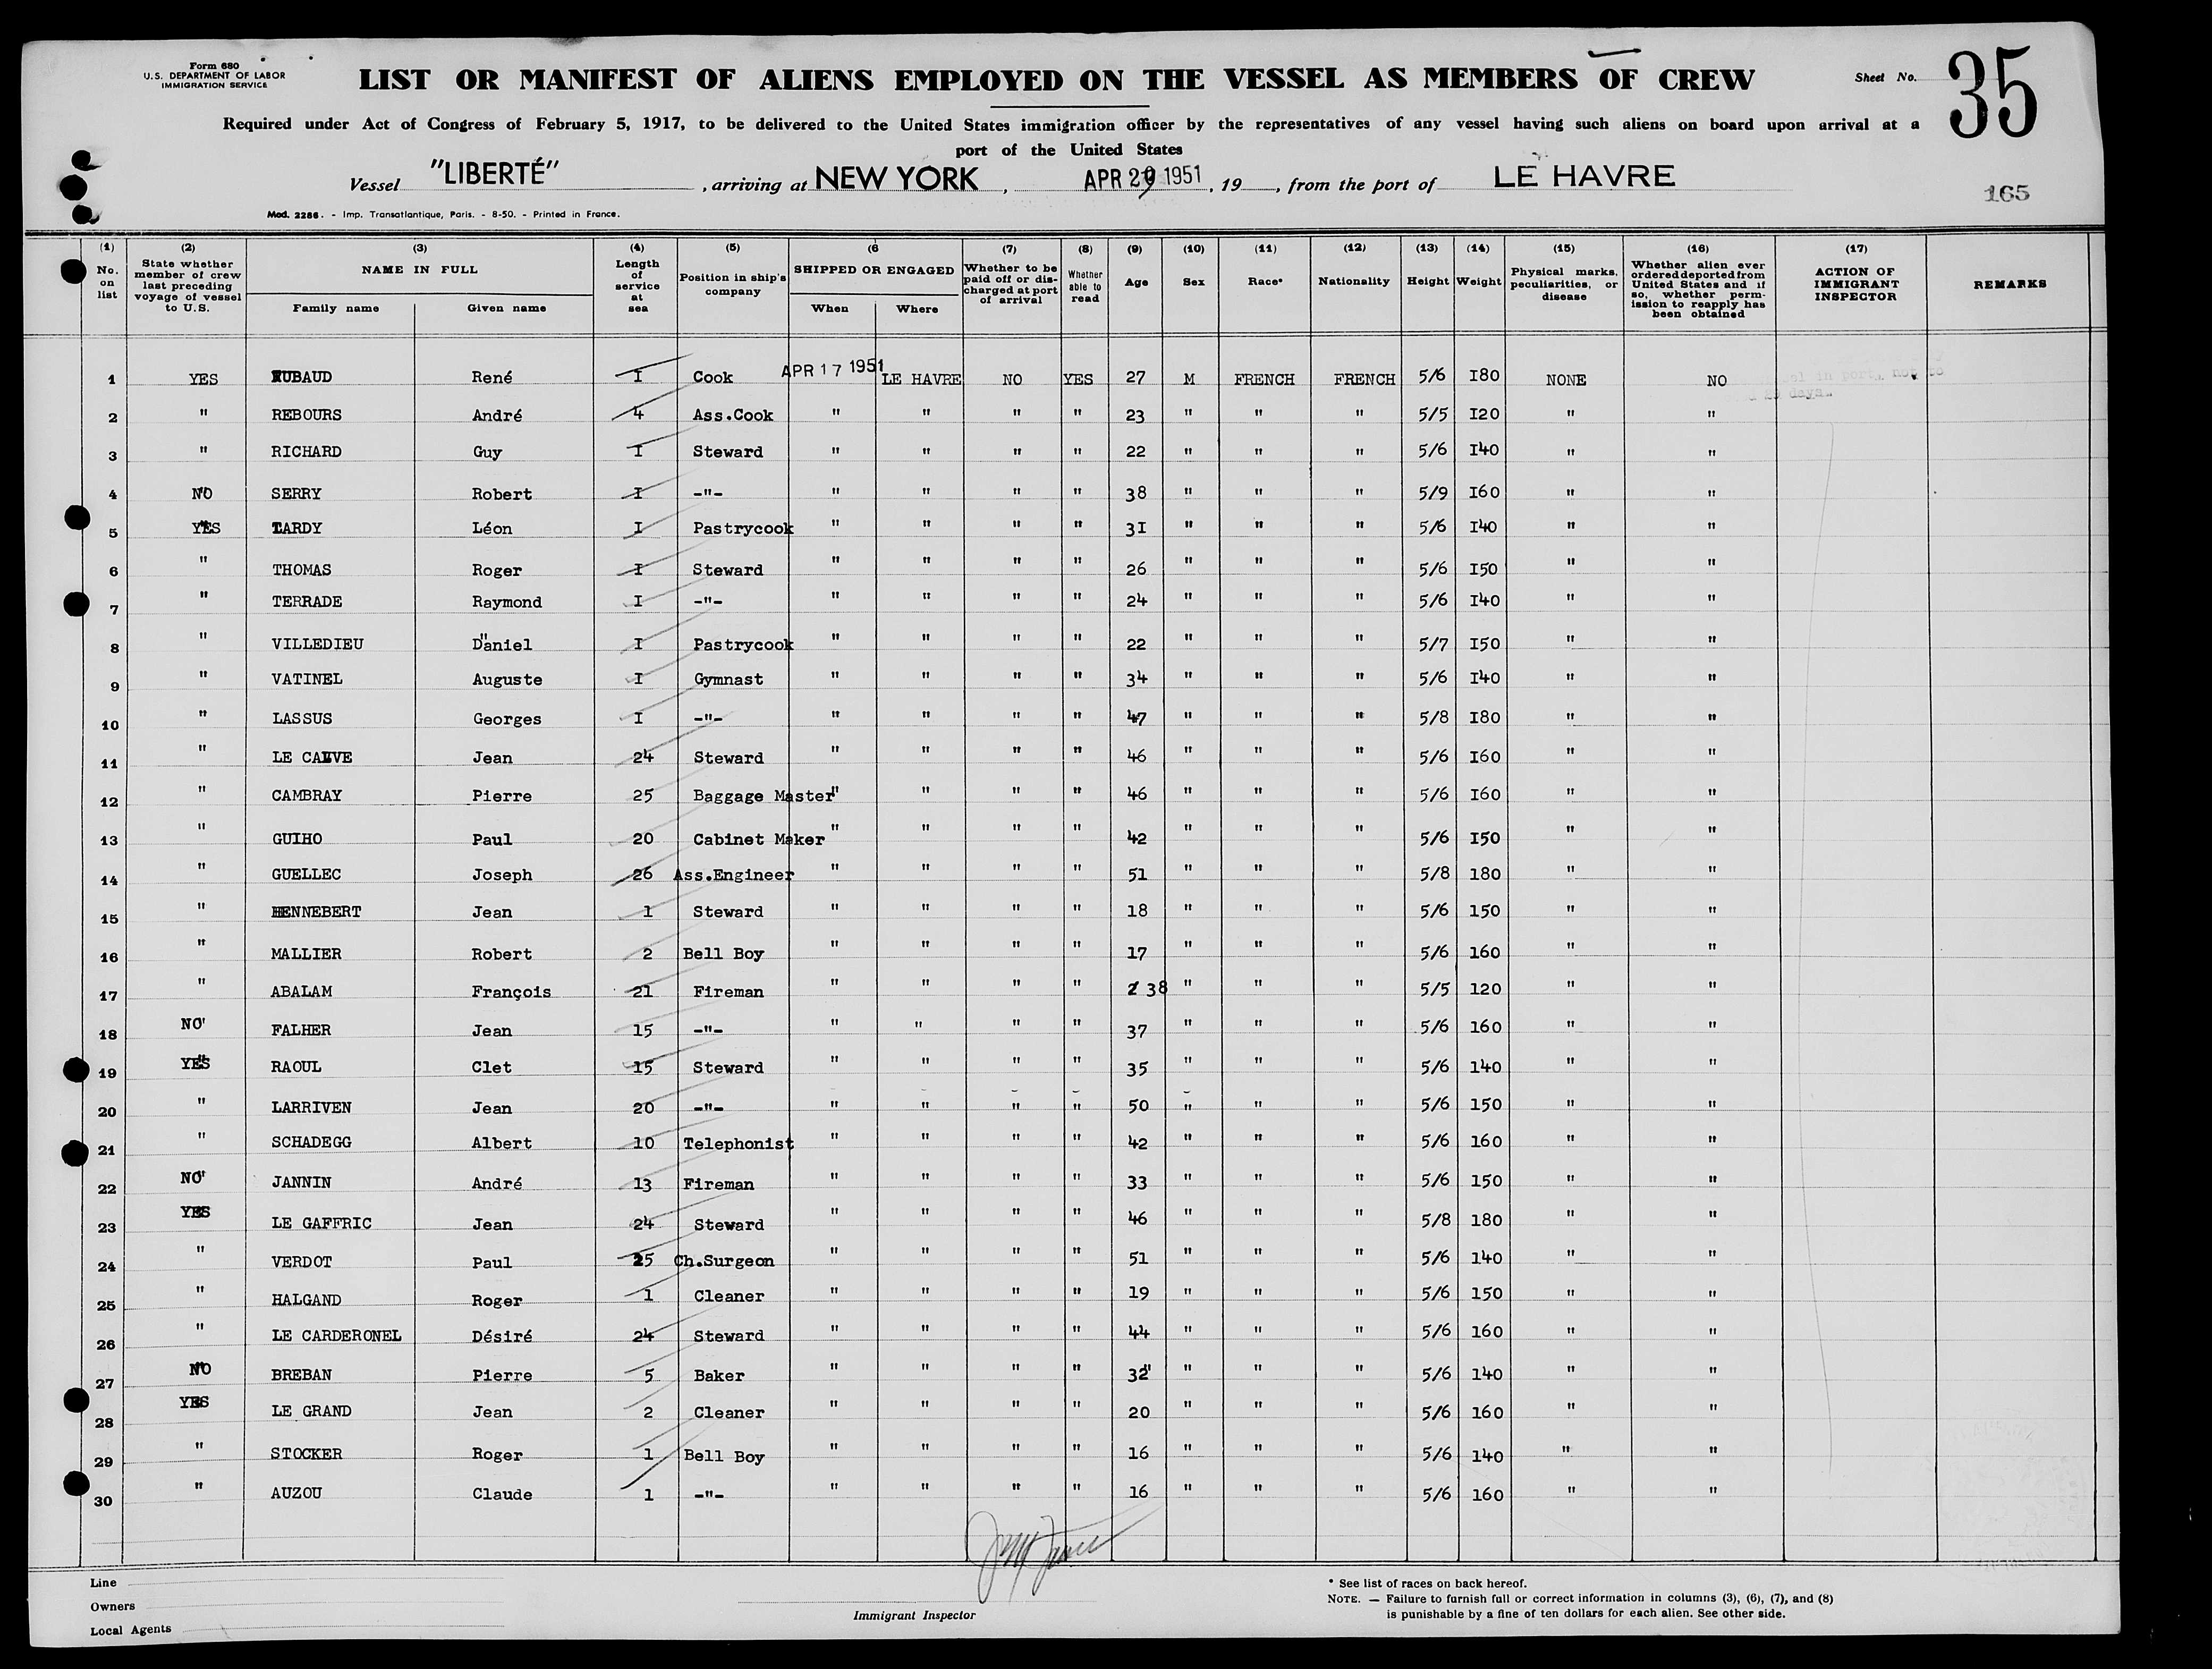 Form 680
U.S. DEPARTMENT OF LABOR
IMMIGRATION SERVICE
LIST OR MANIFEST OF ALIENS EMPLOYED ON THE VESSEL AS MEMBERS OF CREW
Sheet No. 35
Required under Act of Congress of February 5, 1917, to be delivered to the United States immigration officer by the representatives of any vessel having such aliens on board upon arrival at a
port of the United States
Vessel "LIBERTÉ", arriving at NEW YORK, APR 29 1951, 19, from the port of LE HAVRE
165
Mod. 2286. - Imp. Transatlantique, Paris. - 8-50. - Printed in France.
(1) No. on list (2) State whether member of crew last preceding voyage of vessel to U.S. (3) NAME IN FULL Family name Given name (4) Length of service at sea (5) Position in ship's company (6 SHIPPED OR ENGAGED When Where (7) Whether to be paid off or discharged at port of arrival (8) Whether able to read (9) Age (10) Sex (11) Race* (12) Nationality (13) Height (14) Weight (15) Physical marks, peculiarities, or disease (16) Whether alien ever ordered deported from United States and if so, whether permission to reapply has been obtained (17) ACTION OF IMMIGRANT INSPECTOR REMARKS
1 YES RUBAUD René I Cook APR 17 1951 LE HAVRE NO YES 27 M FRENCH FRENCH 5/6 I80 NONE NO
2 " REBOURS André 4 Ass.Cook " " " " 23 " " " 5/5 I20 " "
3 " RICHARD Guy I Steward " " " " 22 " " " 5/6 I40 " "
4 NO SERRY Robert I -"- " " " " 38 " " " 5/9 I60 " "
5 YES TARDY Léon I Pastrycook " " " " 3I " " " 5/6 I40 " "
6 " THOMAS Roger I Steward " " " " 26 " " " 5/6 I50 " "
7 " TERRADE Raymond I -"- " " " " 24 " " " 5/6 I40 " "
8 " VILLEDIEU Daniel I Pastrycook " " " " 22 " " " 5/7 I50 " "
9 " VATINEL Auguste I Gymnast " " " " 34 " " " 5/6 I40 " "
10 " LASSUS Georges I -"- " " " " 47 " " " 5/8 I80 " "
11 " LE CALVE Jean 24 Steward " " " " 46 " " " 5/6 I60 " "
12 " CAMBRAY Pierre 25 Baggage Master " " " " 46 " " " 5/6 I60 " "
13 " GUIHO Paul 20 Cabinet Maker " " " " 42 " " " 5/6 I50 " "
14 " GUELLEC Joseph 26 Ass.Engineer " " " " 51 " " " 5/8 180 " "
15 " HENNEBERT Jean 1 Steward " " " " 18 " " " 5/6 150 " "
16 " MALLIER Robert 2 Bell Boy " " " " 17 " " " 5/6 160 " "
17 " ABALAM François 21 Fireman " " " " 38 " " " 5/5 120 " "
18 NO FALHER Jean 15 -"- " " " " 37 " " " 5/6 160 " "
19 YES RAOUL Clet 15 Steward " " " " 35 " " " 5/6 140 " "
20 " LARRIVEN Jean 20 -"- " " " " 50 " " " 5/6 150 " "
21 " SCHADEGG Albert 10 Telephonist " " " " 42 " " " 5/6 160 " "
22 NO JANNIN André 13 Fireman " " " " 33 " " " 5/6 150 " "
23 YES LE GAFFRIC Jean 24 Steward " " " " 46 " " " 5/8 180 " "
24 " VERDOT Paul 25 Ch.Surgeon " " " " 51 " " " 5/6 140 " "
25 " HALGAND Roger 1 Cleaner " " " " 19 " " " 5/6 150 " "
26 " LE CARDERONEL Désiré 24 Steward " " " " 44 " " " 5/6 160 " "
27 NO BREBAN Pierre 5 Baker " " " " 32 " " " 5/6 140 " "
28 YES LE GRAND Jean 2 Cleaner " " " " 20 " " " 5/6 160 " "
29 " STOCKER Roger 1 Bell Boy " " " " 16 " " " 5/6 140 " "
30 " AUZOU Claude 1 -"- " " " " 16 " " " 5/6 160 " "
Line
Owners
Local Agents
Immigrant Inspector
* See list of races on back hereof.
NOTE. — Failure to furnish full or correct information in columns (3), (6), (7), and (8)
is punishable by a fine of ten dollars for each alien. See other side.